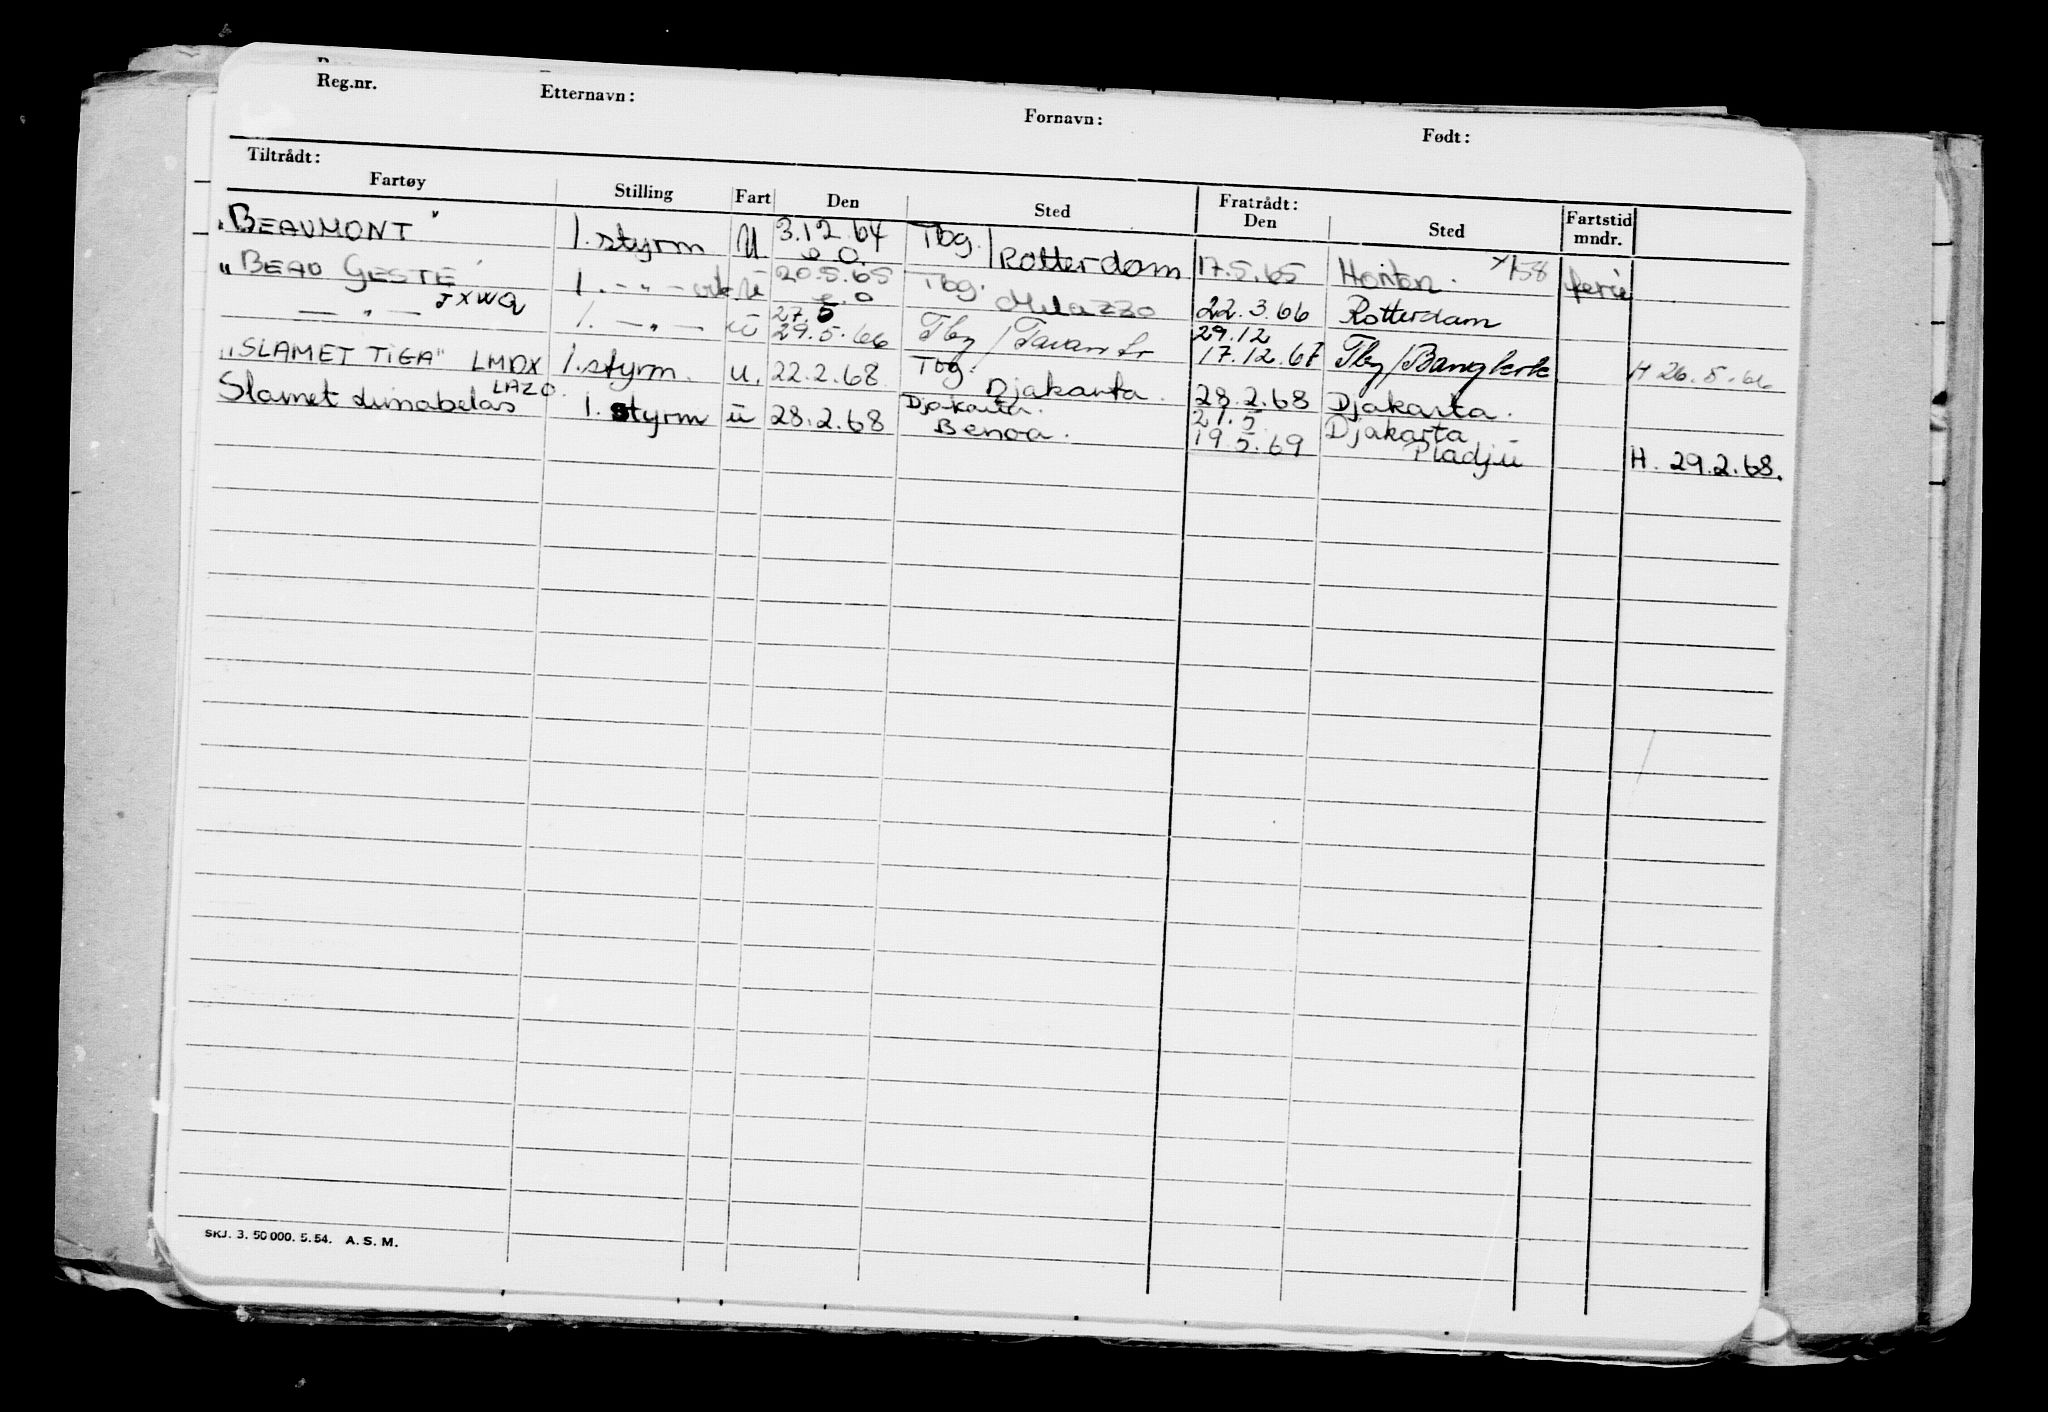 Reg.nr. Etternavn: Fornavn: Født:
Tiltrådt: Fratrådt:
Fartøy Stilling Fart Den Sted Den Sted Fartstid mndr.
"BEAUMONT" 1. styrm U 3.12.64 Tbg. / Rotterdam 17.5.65 Horten. ferie
"BEAU GESTE" 1. -"- u 20.5.65 Tbg. Milazzo 22.3.66 Rotterdam
JXWQ
-"- 1. -"- u 27.5 29.5.66 Tbg / 29.12 17.12.67 Tbg / Bangkok H 26.5.66
"SLAMET TIGA" LMDX 1. styrm. u. 22.2.68 Tbg. Djakarta. 28.2.68 Djakarta.
LAZO.
Slamet dimabelas 1. styrm u 28.2.68 Djakarta. Benoa. 21.5 19.5.69 Djakarta Pladju H. 29.2.68.
SKJ. 3. 50 000. 5. 54. A. S. M.